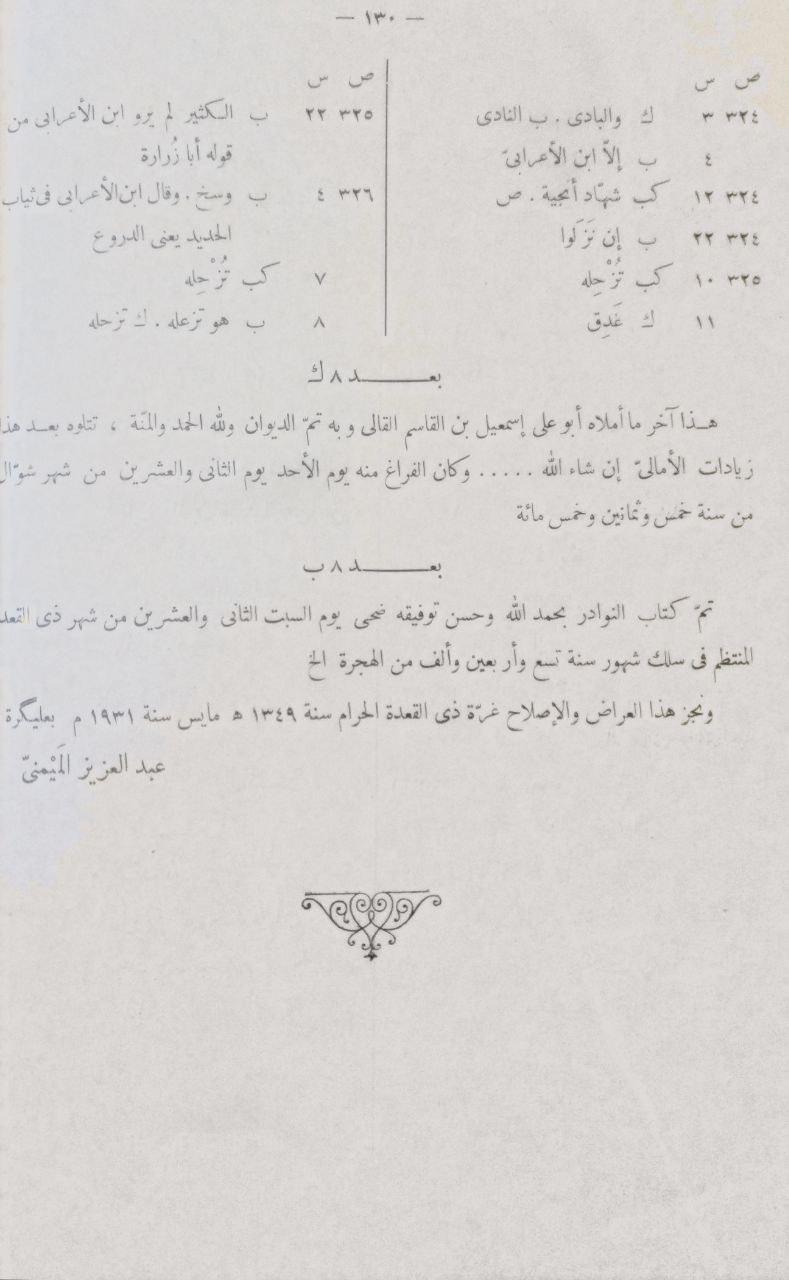 — ١٣٠ —
ص س
٣٢٤ ٣ ك والبادى . ب النادى
٤ ب إلاّ ابن الأعرابىّ
٣٢٤ ١٢ كب شهّاد أنجية . ص
٣٢٤ ٢٢ ب إن نَزَلوا
٣٢٥ ١٠ كب تُزْحِله
١١ ك غَدِق
ص س
٣٢٥ ٢٢ ب الكثير لم يرو ابن الأعرابى من
قوله أبا زُرارة
٣٢٦ ٤ ب وسخ . وقال ابن الأعرابى فى ثياب
الحديد يعنى الدروع
٧ كب تُزْحِله
٨ ب هو تزعله . ك تزحله
بعـــــد ٨ ك
هـذا آخر ما أملاه أبو على إسمعيل بن القاسم القالى وبه تمّ الديوان ولله الحمد والمنّة ، تتلوه بعـد هذا
زيادات الأمالىّ إن شاء الله ..... وكان الفراغ منه يوم الأحد يوم الثانى والعشرين من شهر شوّال
من سنة خمس وثمانين وخمس مائة
بعـــــد ٨ ب
تمّ كتاب النوادر بحمد الله وحسن توفيقه ضحى يوم السبت الثانى والعشرين من شهر ذى القعد
المنتظم فى سلك شهور سنة تسع وأربعين وألف من الهجرة الخ
ونجز هذا العراض والإصلاح غرّة ذى القعدة الحرام سنة ١٣٤٩ ه مايس سنة ١٩٣١ م بعليگرة
عبد العزيز المَيْمنىّ